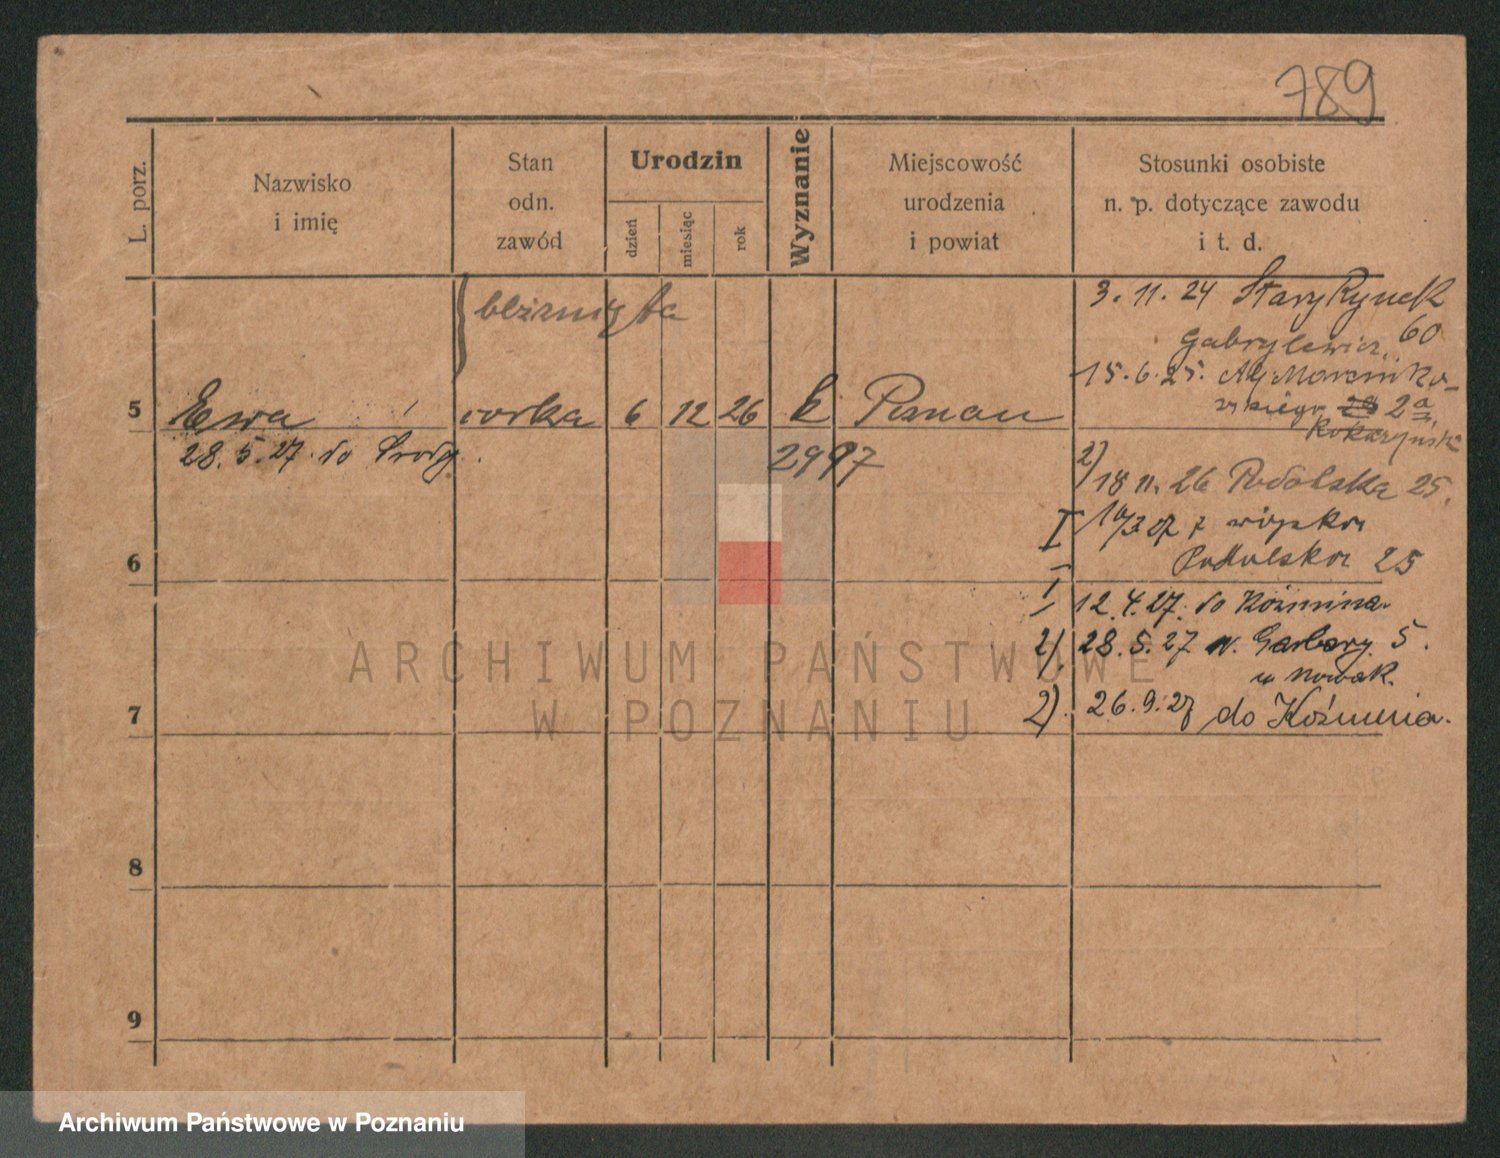 789
L. porz.
Nazwisko
i imię
Stan
odn.
zawód
Urodzin
dzień
miesiąc
rok
Wyznanie
Miejscowość
urodzenia
i powiat
Stosunki osobiste
n. p. dotyczące zawodu
i t. d.
bliźnięta
3. 11. 24 Stary Rynek
60
Gabrylewicz
15. 6. 25. Al. Marcinko-
wskiego 2a
5 Ewa córka 6 12 26 k Poznań
28. 5. 27. do Środy.
2997
2)
18 11. 26 Podolska 25.
I 27 z wojska
Podolska 25
6
I 12. 4. 27. do Koźmina.
2) 28. 5. 27 Garbary 5.
u Nowak.
7
2). 26. 9. 27 do Koźmina.
8
9
ARCHIWUM PAŃSTWOWE
W POZNANIU
Archiwum Państwowe w Poznaniu